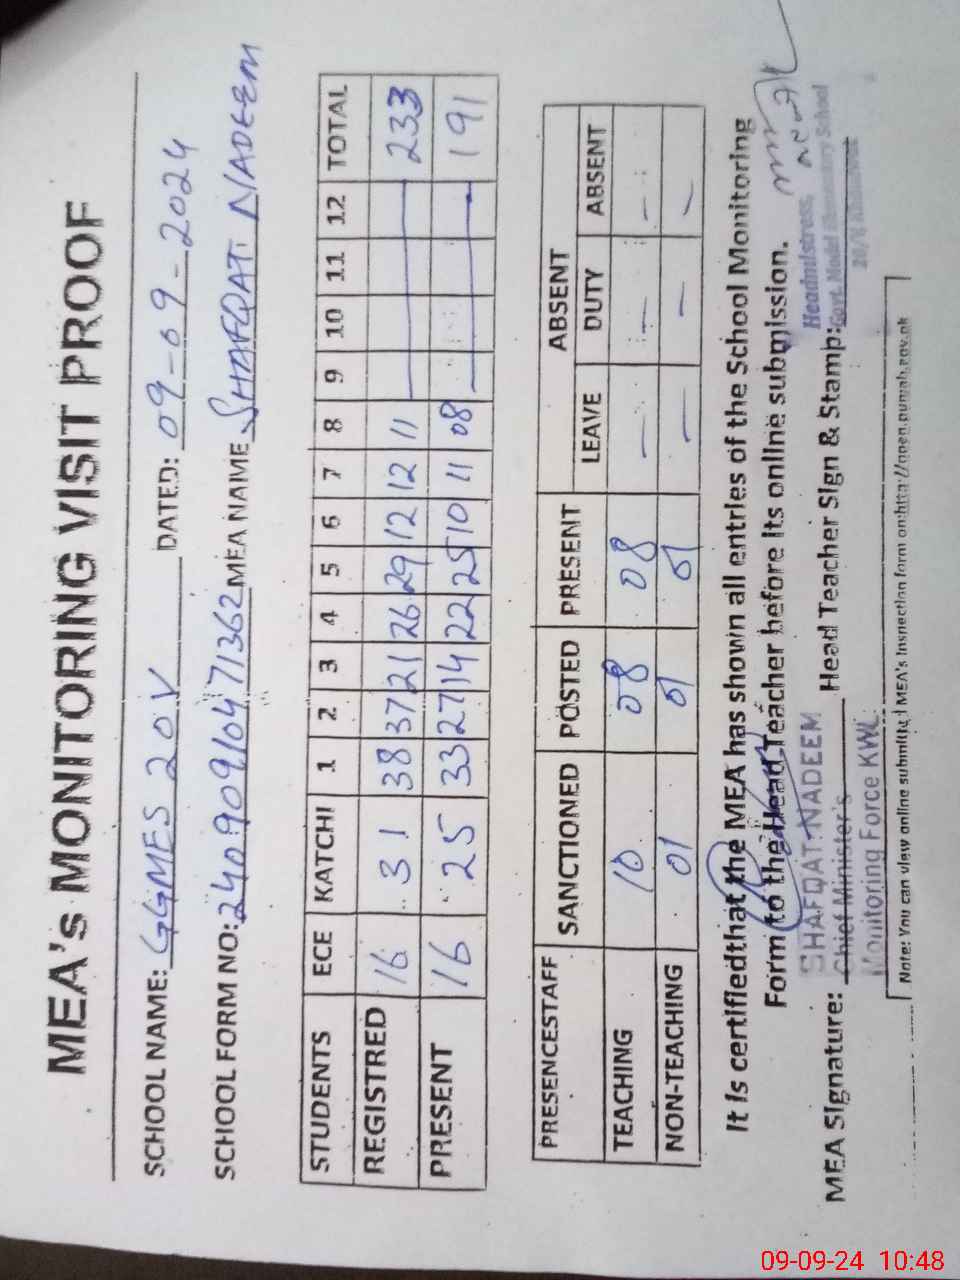 MEA's MONITORING VISIT PROOF
SCHOOL NAME: GGMES 20V DATED: 09-09-2024
SCHOOL FORM NO: 24090910471362 MEA NAME SHAFQAT NADEEM
STUDENTS ECE KATCHI 1 2 3 4 5 6 7 8 9 10 11 12 TOTAL
REGISTRED 16 31 38 37 21 26 29 12 12 11 233
PRESENT 16 25 33 27 14 22 25 10 11 08 191
PRESENCESTAFF SANCTIONED POSTED PRESENT ABSENT
LEAVE DUTY ABSENT
TEACHING 10 08 08 — — —
NON-TEACHING 01 01 01 — — —
It is certifiedthat the MEA has shown all entries of the School Monitoring
Form to the Head Teacher before its online submission.
SHAFQAT NADEEM
Chief Minister's
Monitoring Force KWL
MEA Signature: Head Teacher Sign & Stamp:
Headmistress,
Govt. Model Elementary School
Note: You can view online submitted MEA's Inspection form on:http://open.punjab.gov.pk
09-09-24 10:48